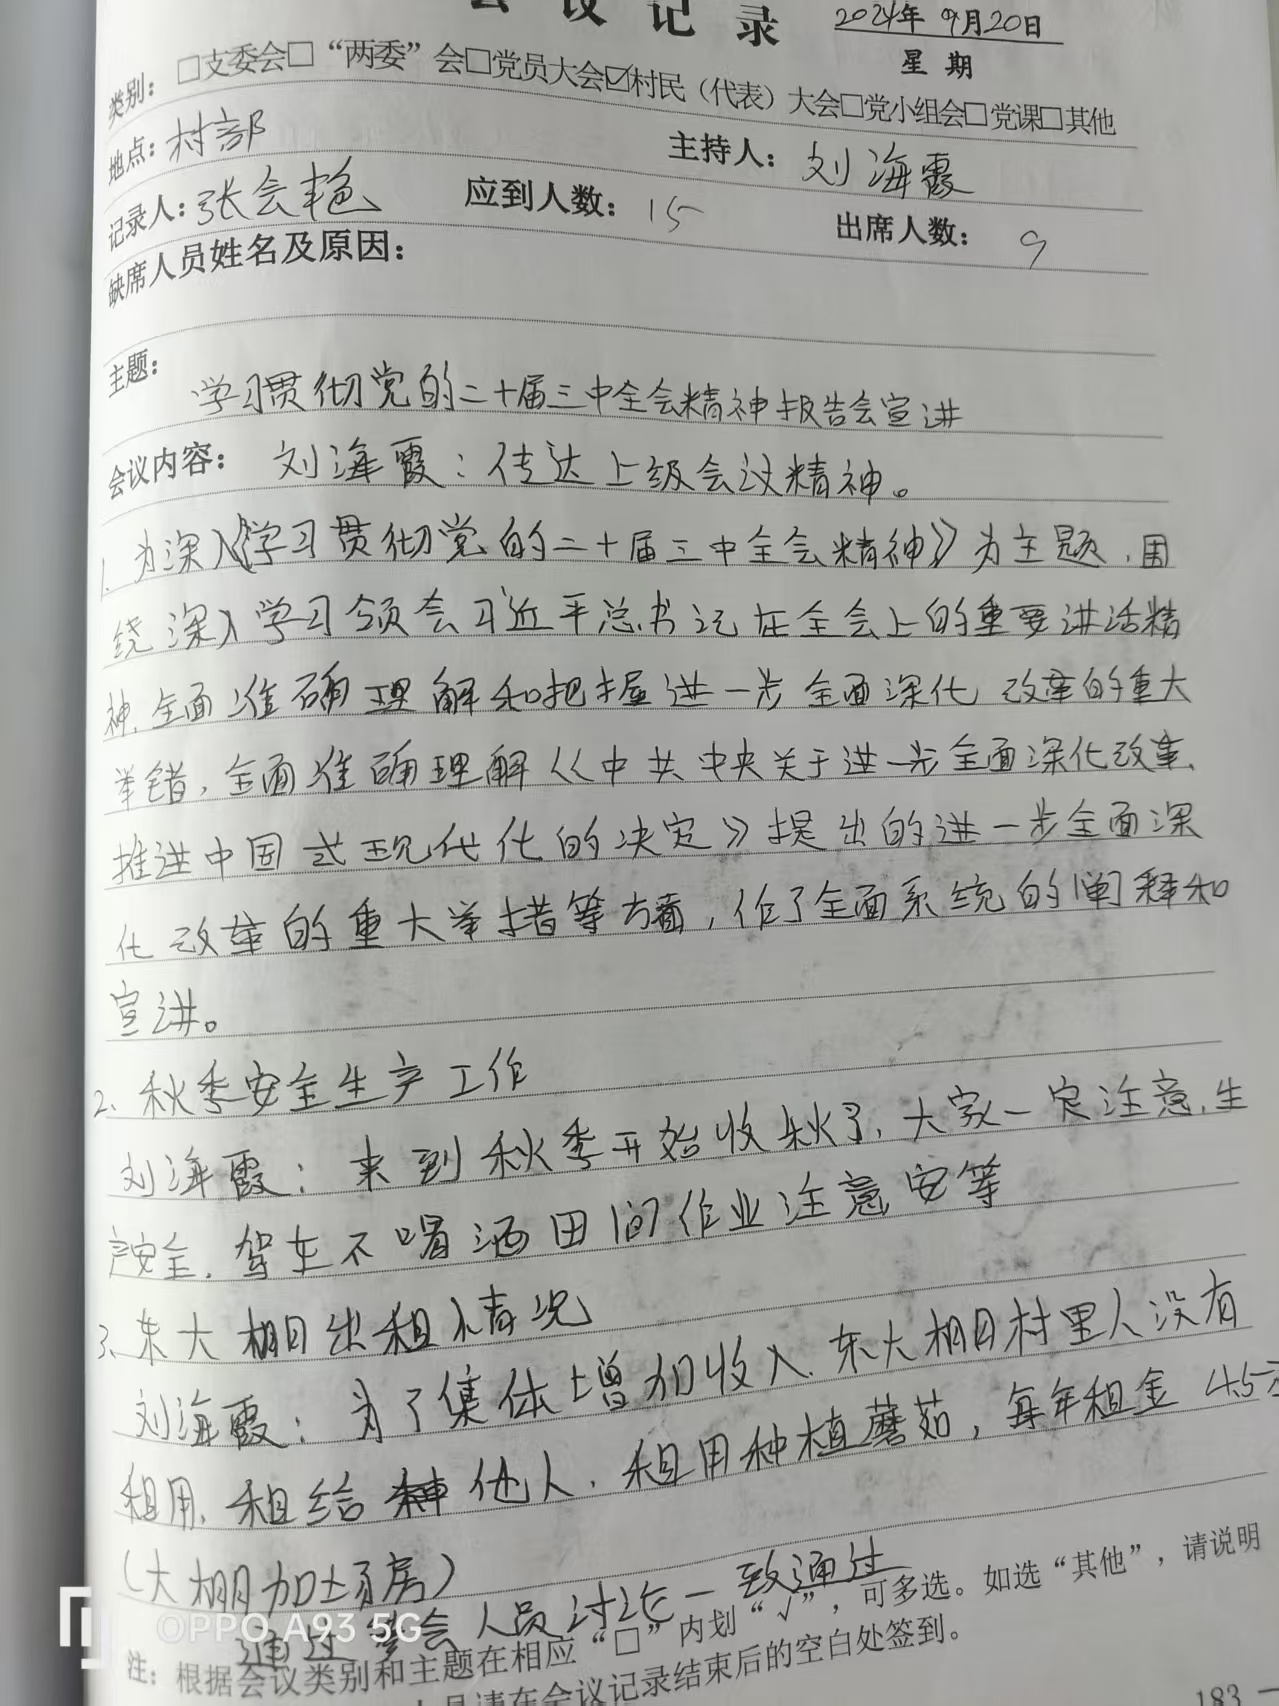 会议记录
2024年9月20日
星期
类别：□支委会□“两委”会□党员大会☑村民（代表）大会□党小组会□党课□其他
地点：村部 主持人：刘海霞
记录人：张会艳 应到人数：15 出席人数：9
缺席人员姓名及原因：
主题：
学习贯彻党的二十届三中全会精神报告会宣讲
会议内容：刘海霞：传达上级会议精神。
1.为深入《学习贯彻党的二十届三中全会精神》为主题，围
绕深入学习领会习近平总书记在全会上的重要讲话精
神，全面准确理解和把握进一步全面深化改革的重大
举错，全面准确理解《中共中央关于进一步全面深化改革、
推进中国式现代化的决定》提出的进一步全面深
化改革的重大举措等方面，作了全面系统的阐释和
宣讲。
2、秋季安全生产工作
刘海霞：来到秋季开始收秋了，大家一定注意，生
产安全，驾车不喝酒田间作业注意安等
3、东大棚出租情况
刘海霞：为了集体增加收入，东大棚村里人没有
租用，租给他人，租用种植蘑茹，每年租金4.5万
（大棚加土房）
通过参会人员讨论一致通过
注：根据会议类别和主题在相应“□”内划“√”，可多选。如选“其他”，请说明
人员请在会议记录结束后的空白处签到。
OPPO A93 5G
183